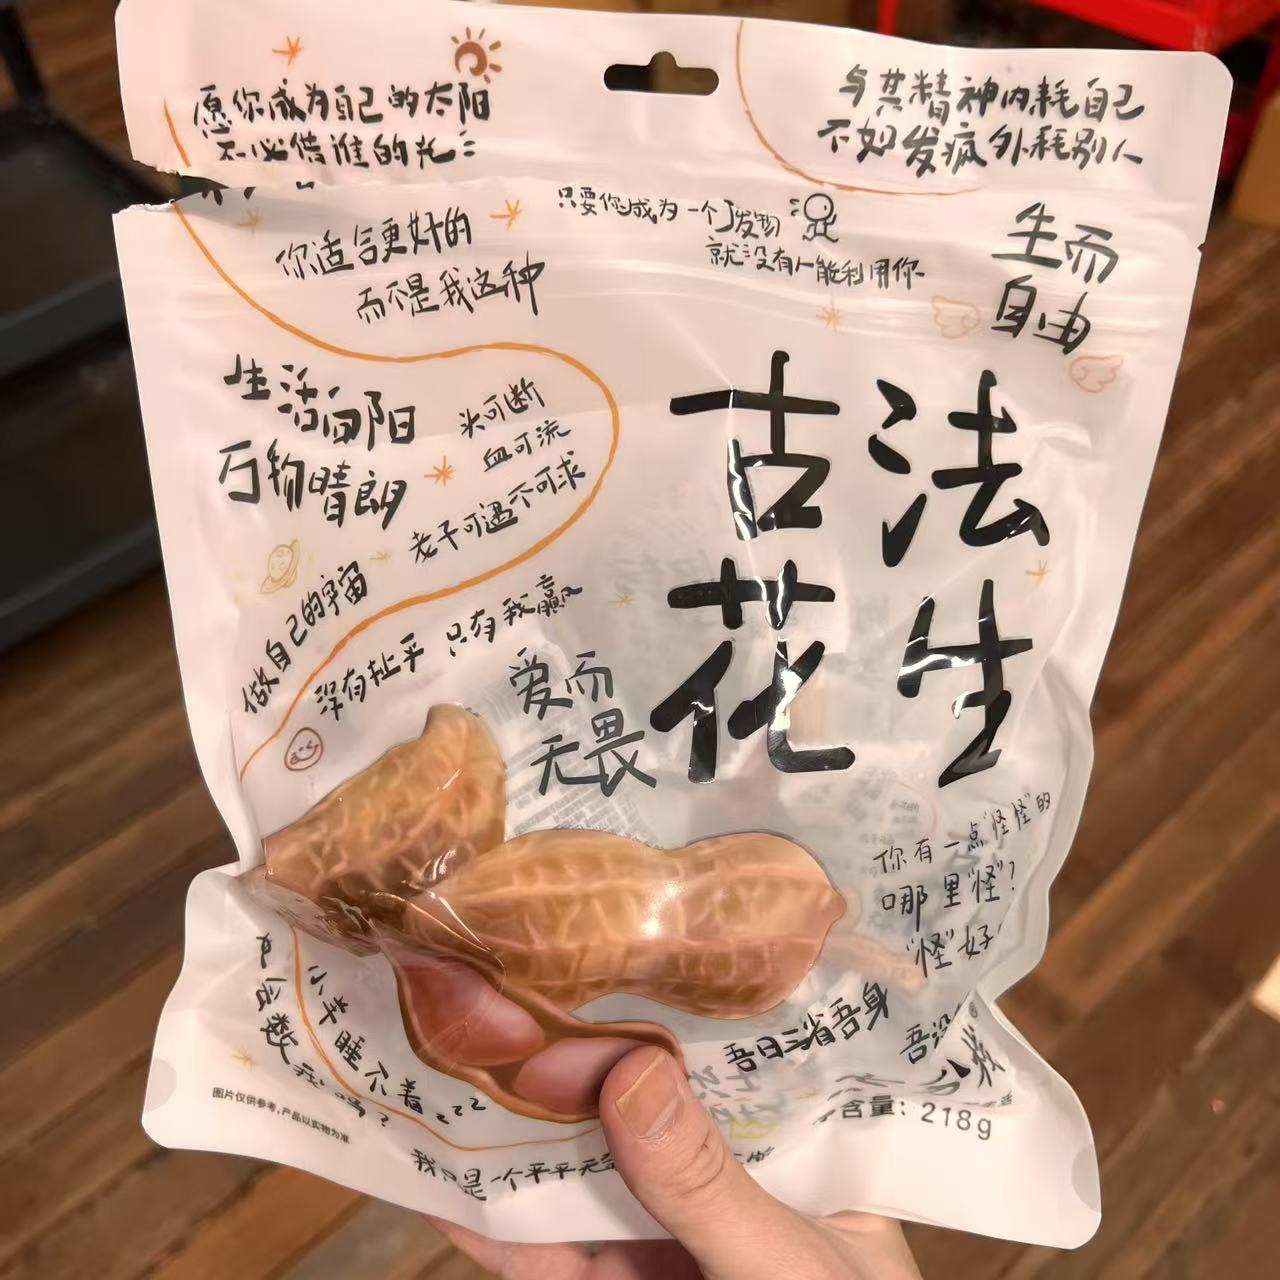 愿你成为自己的太阳
不必借谁的光
与其精神内耗自己
不如发疯外耗别人
只要你成为一个废物
就没有人能利用你
你适合更好的
而不是我这种
生而
自由
生活向阳
万物晴朗
头可断
血可流
老子可遇不可求
古法
花生
做自己的宇宙
没有扯平 只有我赢
爱而
无畏
你有一点“怪怪”的
哪里“怪”?
“怪”好
小羊睡不着zzz
会数
吗?
吾日三省吾身
吾没
含量: 218g
图片仅供参考,产品以实物为准
我只是一个平平无